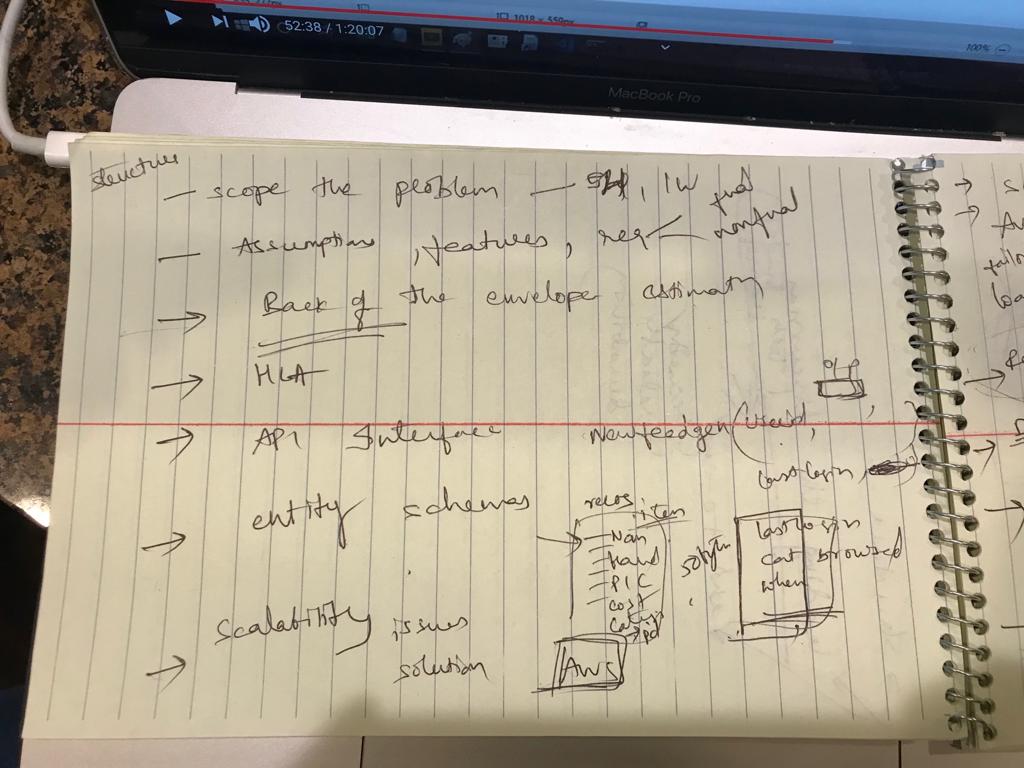 52:38 / 1:20:07
1018 × 559px
100%
MacBook Pro
structure
— scope the problem — , 1W
— Assumptions, features, req < fnal
nonfnal
→ Back of the envelope estimatn
→ HLA
→ API Interface Newfeedgen (userid,
last login,
→ entity schemas
recos
item
Nam
PIC
cost
last login
cat browsed
when
scalability issues
→ solution
AWS